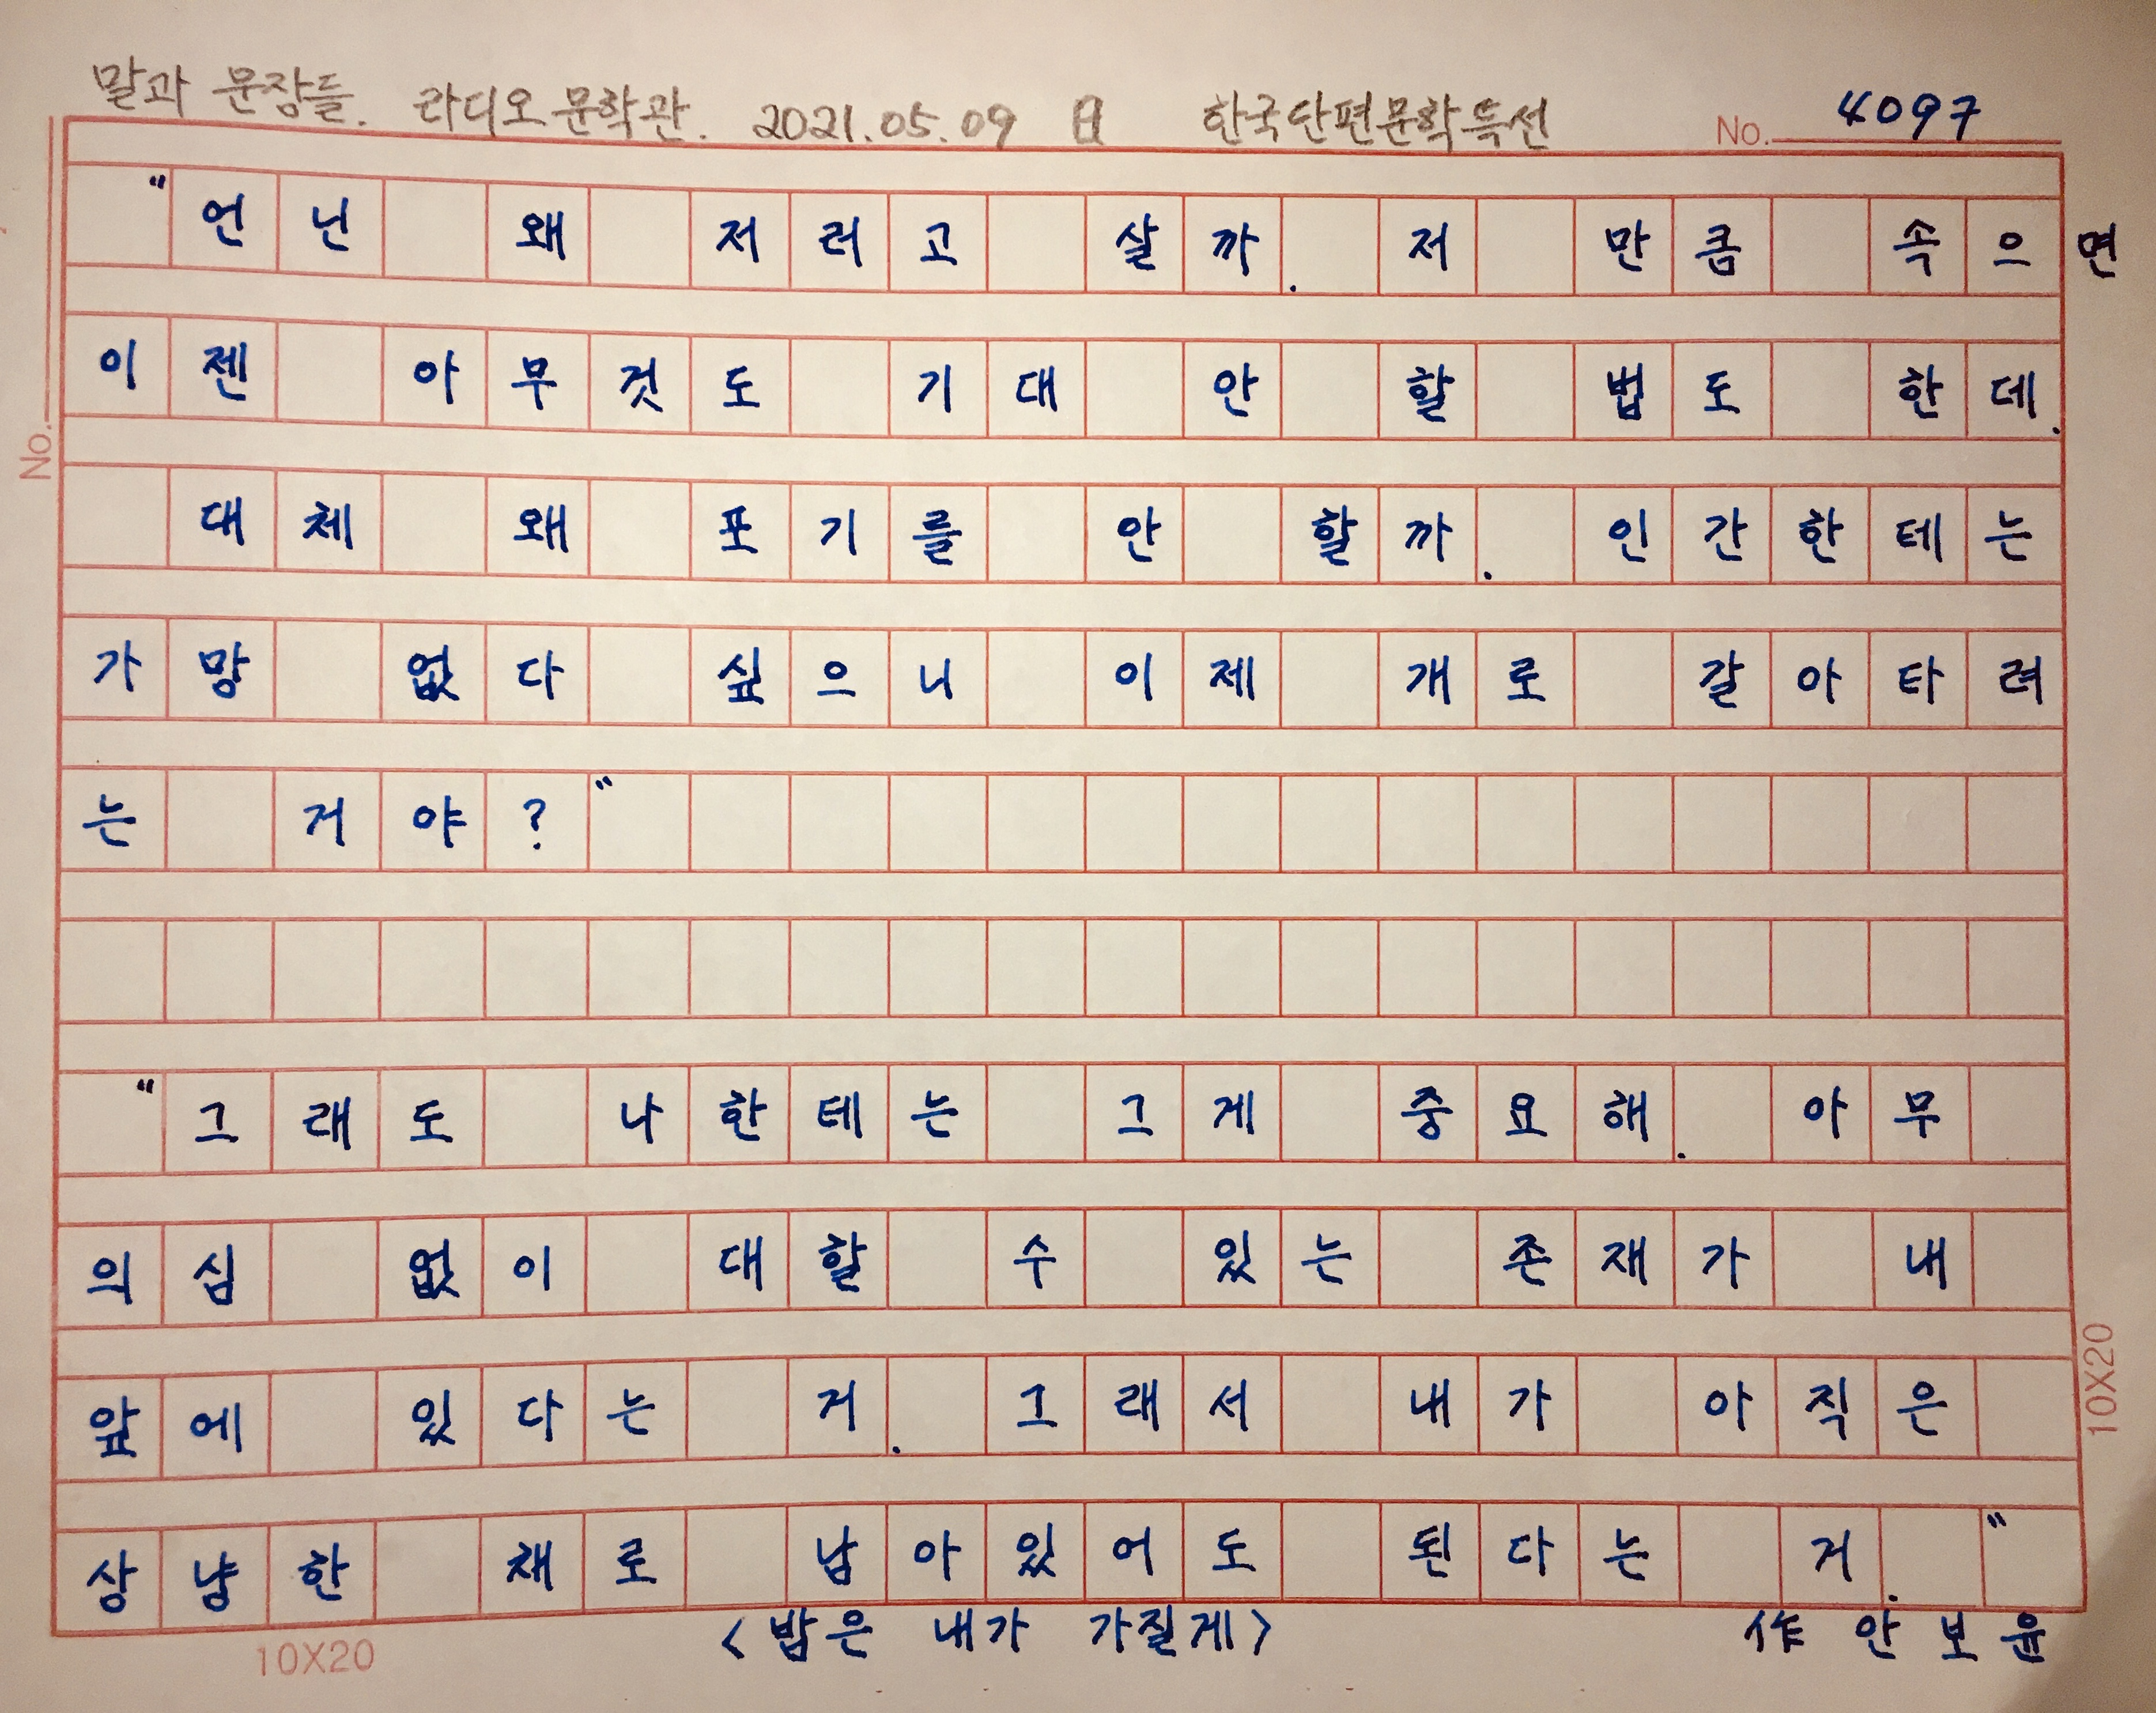 말과 문장들. 라디오문학관. 2021.05.09 日 한국단편문학특선 No. 4097
"언닌 왜 저러고 살까. 저 만큼 속으면
이젠 아무것도 기대 안 할 법도 한데.
대체 왜 포기를 안 할까. 인간한테는
가망 없다 싶으니 이제 개로 갈아타려
는 거야?"
"그래도 나한테는 그게 중요해. 아무
의심 없이 대할 수 있는 존재가 내
앞에 있다는 거. 그래서 내가 아직은
상냥한 채로 남아있어도 된다는 거."
<밤은 내가 가질게> 作 안보윤
No.
10X20
10X20